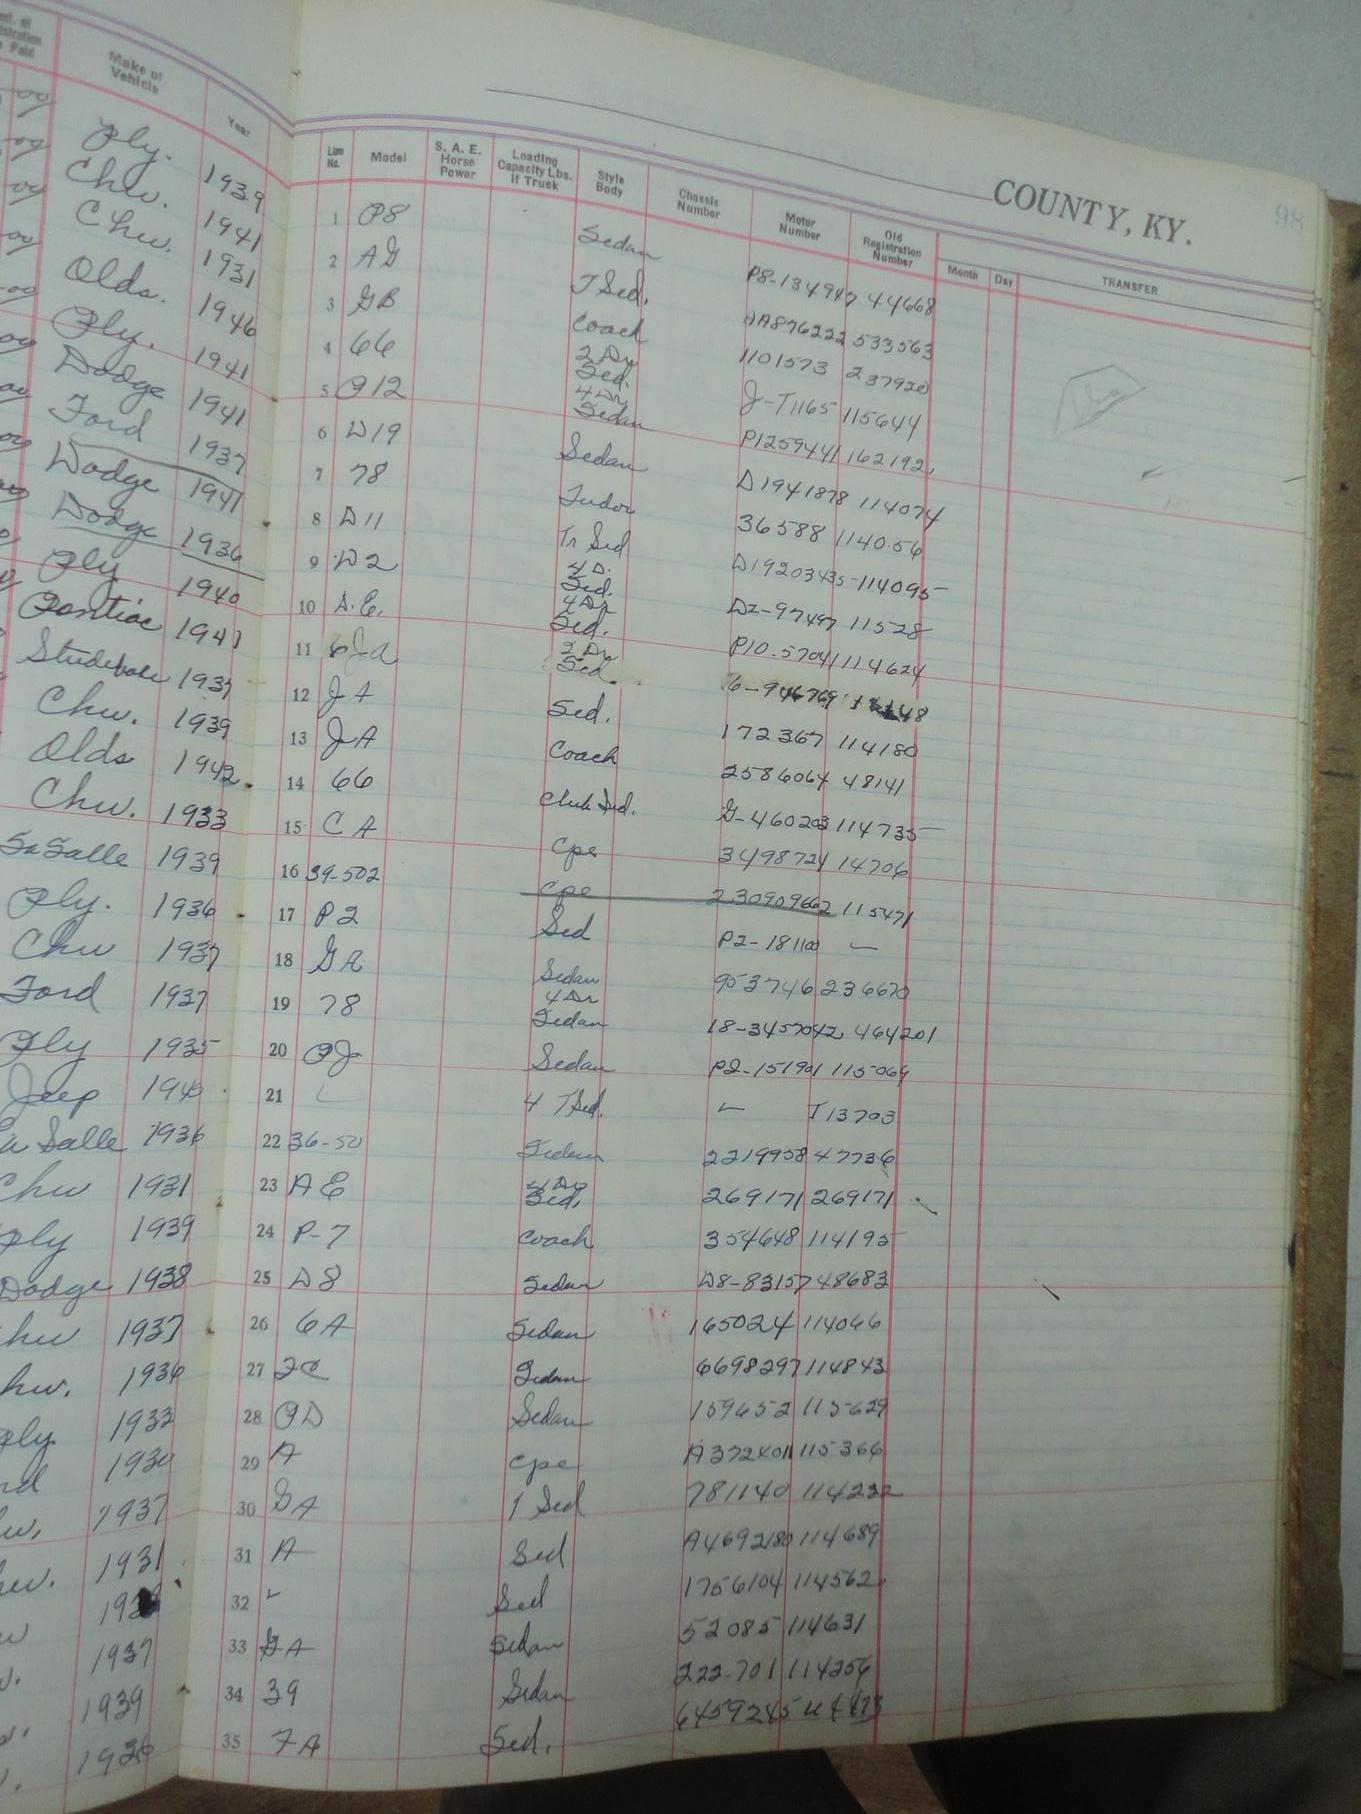 Make of Vehicle Year
Line No. Model S. A. E. Horse Power Loading Capacity Lbs. If Truck Style Body Chassis Number Motor Number Old Registration Number Month Day TRANSFER
COUNTY, KY. 98
Ply. 1939
Chev. 1941
Chev. 1931
Olds. 1946
Ply. 1941
Dodge 1941
Ford 1937
Dodge 1941
Dodge 1936
Ply 1940
Pontiac 1941
Studebake 1937
Chev. 1939
Olds 1942
Chev. 1933
LaSalle 1939
Ply. 1936
Chev 1937
Ford 1937
Ply 1935
Jeep 1940
La Salle 1936
Chev 1931
Ply 1939
Dodge 1938
1937
1936
Ply. 1933
1930
1937
1931
1937
1939
1936
1 P8 Sedan P8-134947 44668
2 AG T Sed. AA876222 533563
3 GB Coach 1101573 237920
4 66 2 Dr Sed. J-T1165 115644
5 P12 4 Dr Sedan P1259441 162192
6 D19 Sedan D1941878 114074
7 78 Tudor 36588 114056
8 D11 Tr Sed D19203435 114095
9 D2 4 D. Sed. D2-97497 11528
10 D.E. 4 Dr Sed. P10.57041 114624
11 6JA 2 Dr Sed. 6-946769
12 JA Sed. 172367 114180
13 JA Coach 2586064 48141
14 66 Club Sed. G-460203 114735
15 CA Cpe 3498724 14706
16 39-502 Cpe 23090966 2 115471
17 P2 Sed P2-181100 —
18 GA Sedan 953746 236670
19 78 4 Dr Sedan 18-3457042 464201
20 PJ Sedan P2-151901 115069
21 4 T Sed. T13703
22 36-50 Sedan 2219958 47736
23 AE 4 Dr Sed. 269171 269171
24 P-7 Coach 354648 114195
25 D8 Sedan D8-83157 48683
26 6A Sedan 165024 114066
27 2C Sedan 6698297 114843
28 PD Sedan 159652 115629
29 A Cpe A372401 115366
30 GA T Sed 781140 114232
31 A Sed A4692180 114689
32 Sed 1756104 114562
33 GA Sedan 52085 114631
34 39 Sedan 222-701 114256
35 7A Sed. 6459245